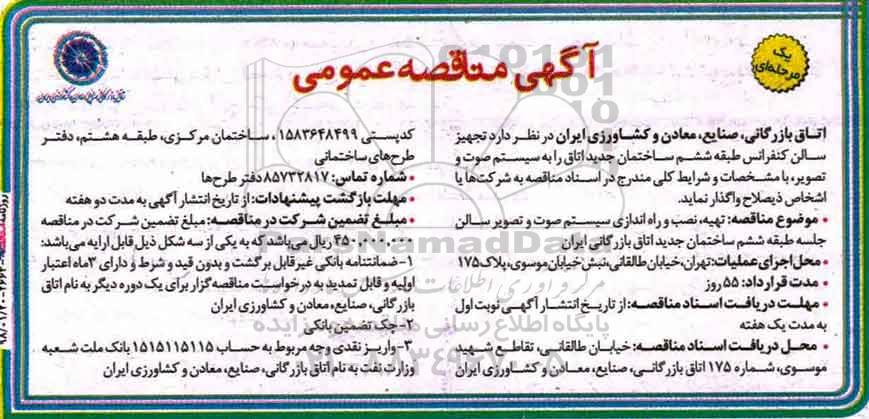 آگهی مناقصه عمومی
یک
مرحله‌ای
اتاق بازرگانی، صنایع، معادن و کشاورزی ایران در نظر دارد تجهیز
سالن کنفرانس طبقه ششم ساختمان جدید اتاق را به سیستم صوت و
تصویر، با مشخصات و شرایط کلی مندرج در اسناد مناقصه به شرکت‌ها یا
اشخاص ذیصلاح واگذار نماید.
• موضوع مناقصه: تهیه، نصب و راه اندازی سیستم صوت و تصویر سالن
جلسه طبقه ششم ساختمان جدید اتاق بازرگانی ایران
• محل اجرای عملیات: تهران، خیابان طالقانی، نبش خیابان موسوی، پلاک ۱۷۵
• مدت قرارداد: ۵۵ روز
• مهلت دریافت اسناد مناقصه: از تاریخ انتشار آگهی نوبت اول
به مدت یک هفته
• محل دریافت اسناد مناقصه: خیابان طالقانی، تقاطع شهید
موسوی، شماره ۱۷۵ اتاق بازرگانی، صنایع، معادن و کشاورزی ایران
کدپستی ۱۵۸۳۶۴۸۴۹۹، ساختمان مرکزی، طبقه هشتم، دفتر
طرح‌های ساختمانی
• شماره تماس: ۸۵۷۳۲۸۱۷ دفتر طرح‌ها
• مهلت بازگشت پیشنهادات: از تاریخ انتشار آگهی به مدت دو هفته
• مبلغ تضمین شرکت در مناقصه: مبلغ تضمین شرکت در مناقصه
۴۵۰،۰۰۰،۰۰۰ ریال می‌باشد که به یکی از سه شکل ذیل قابل ارایه می‌باشد:
۱- ضمانتنامه بانکی غیرقابل برگشت و بدون قید و شرط و دارای ۳ماه اعتبار
اولیه و قابل تمدید به درخواست مناقصه گزار برای یک دوره دیگر به نام اتاق
بازرگانی، صنایع، معادن و کشاورزی ایران
۲- چک تضمین بانکی
۳- واریز نقدی وجه مربوط به حساب ۱۵۱۵۱۱۵۱۱۵ بانک ملت شعبه
وزارت نفت به نام اتاق بازرگانی، صنایع، معادن و کشاورزی ایران
ParsNamadData
پایگاه اطلاع رسانی مناقصه و مزایده